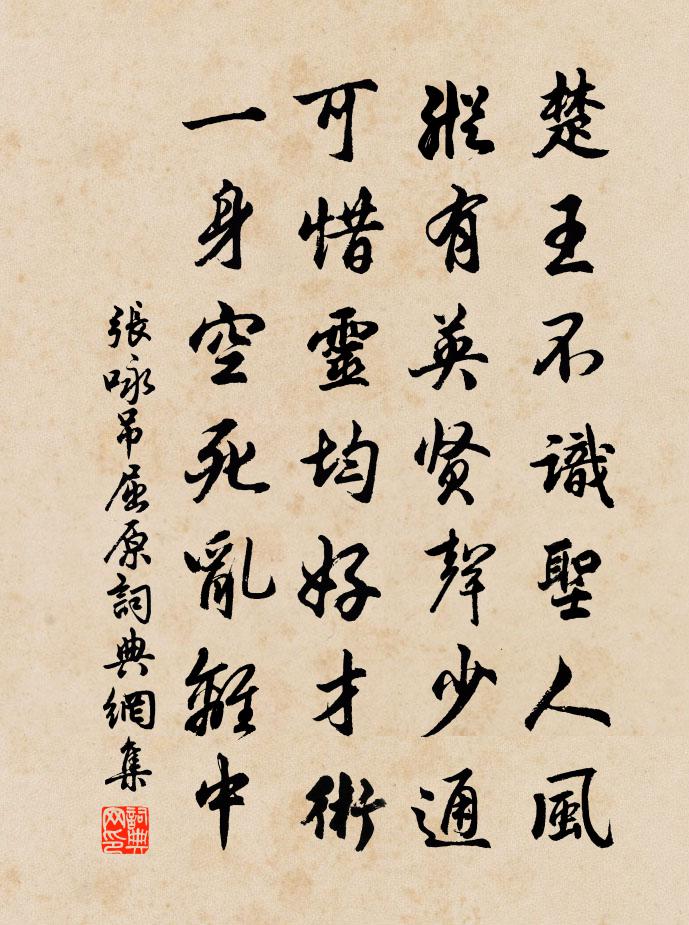 楚王不識聖人風
縱有英賢聲少通
可惜靈均好才術
一身空死亂離中
張咏吊屈原詞典網集
詞典網印